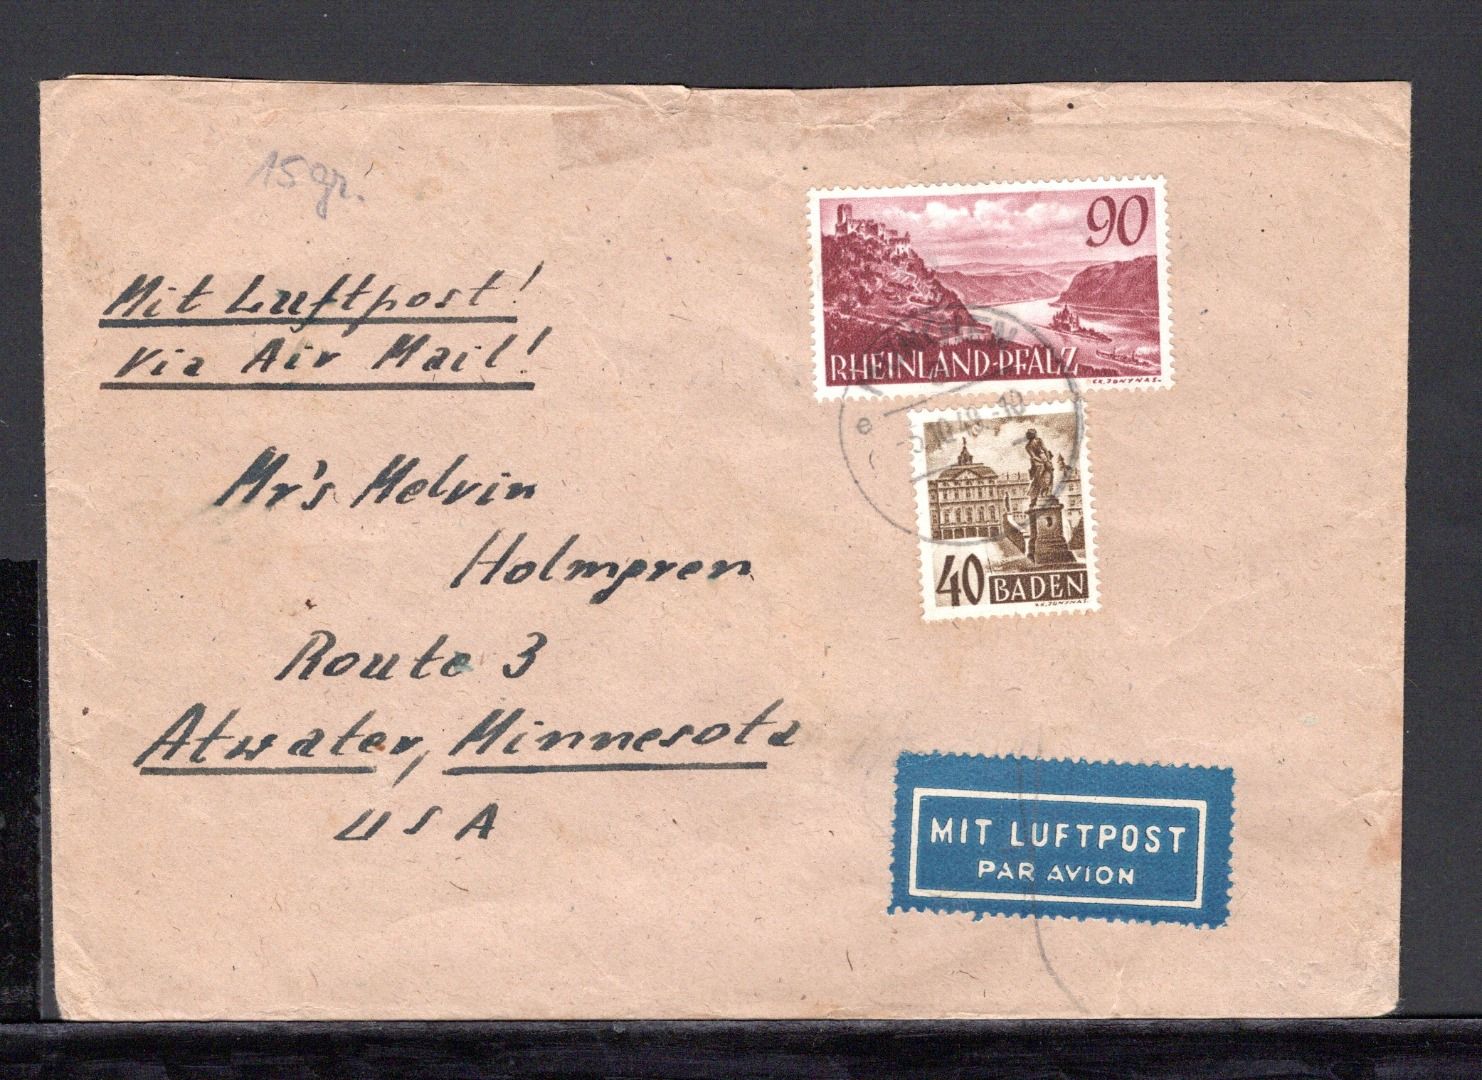 15 gr.
90
RHEINLAND-PFALZ
K.K. JONYNAS.
Mit Luftpost!
Via Air Mail!
e
-5.10.49.-10
Mr's Melvin
Holmgren
40 BADEN
K.K. JONYNAS.
Route 3
Atwater, Minnesota
USA
MIT LUFTPOST
PAR AVION